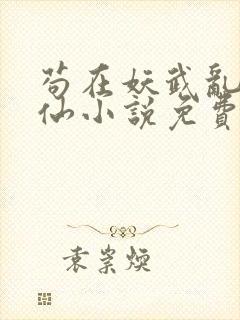 苟在妖武亂
仙小說免費
袁崇煥